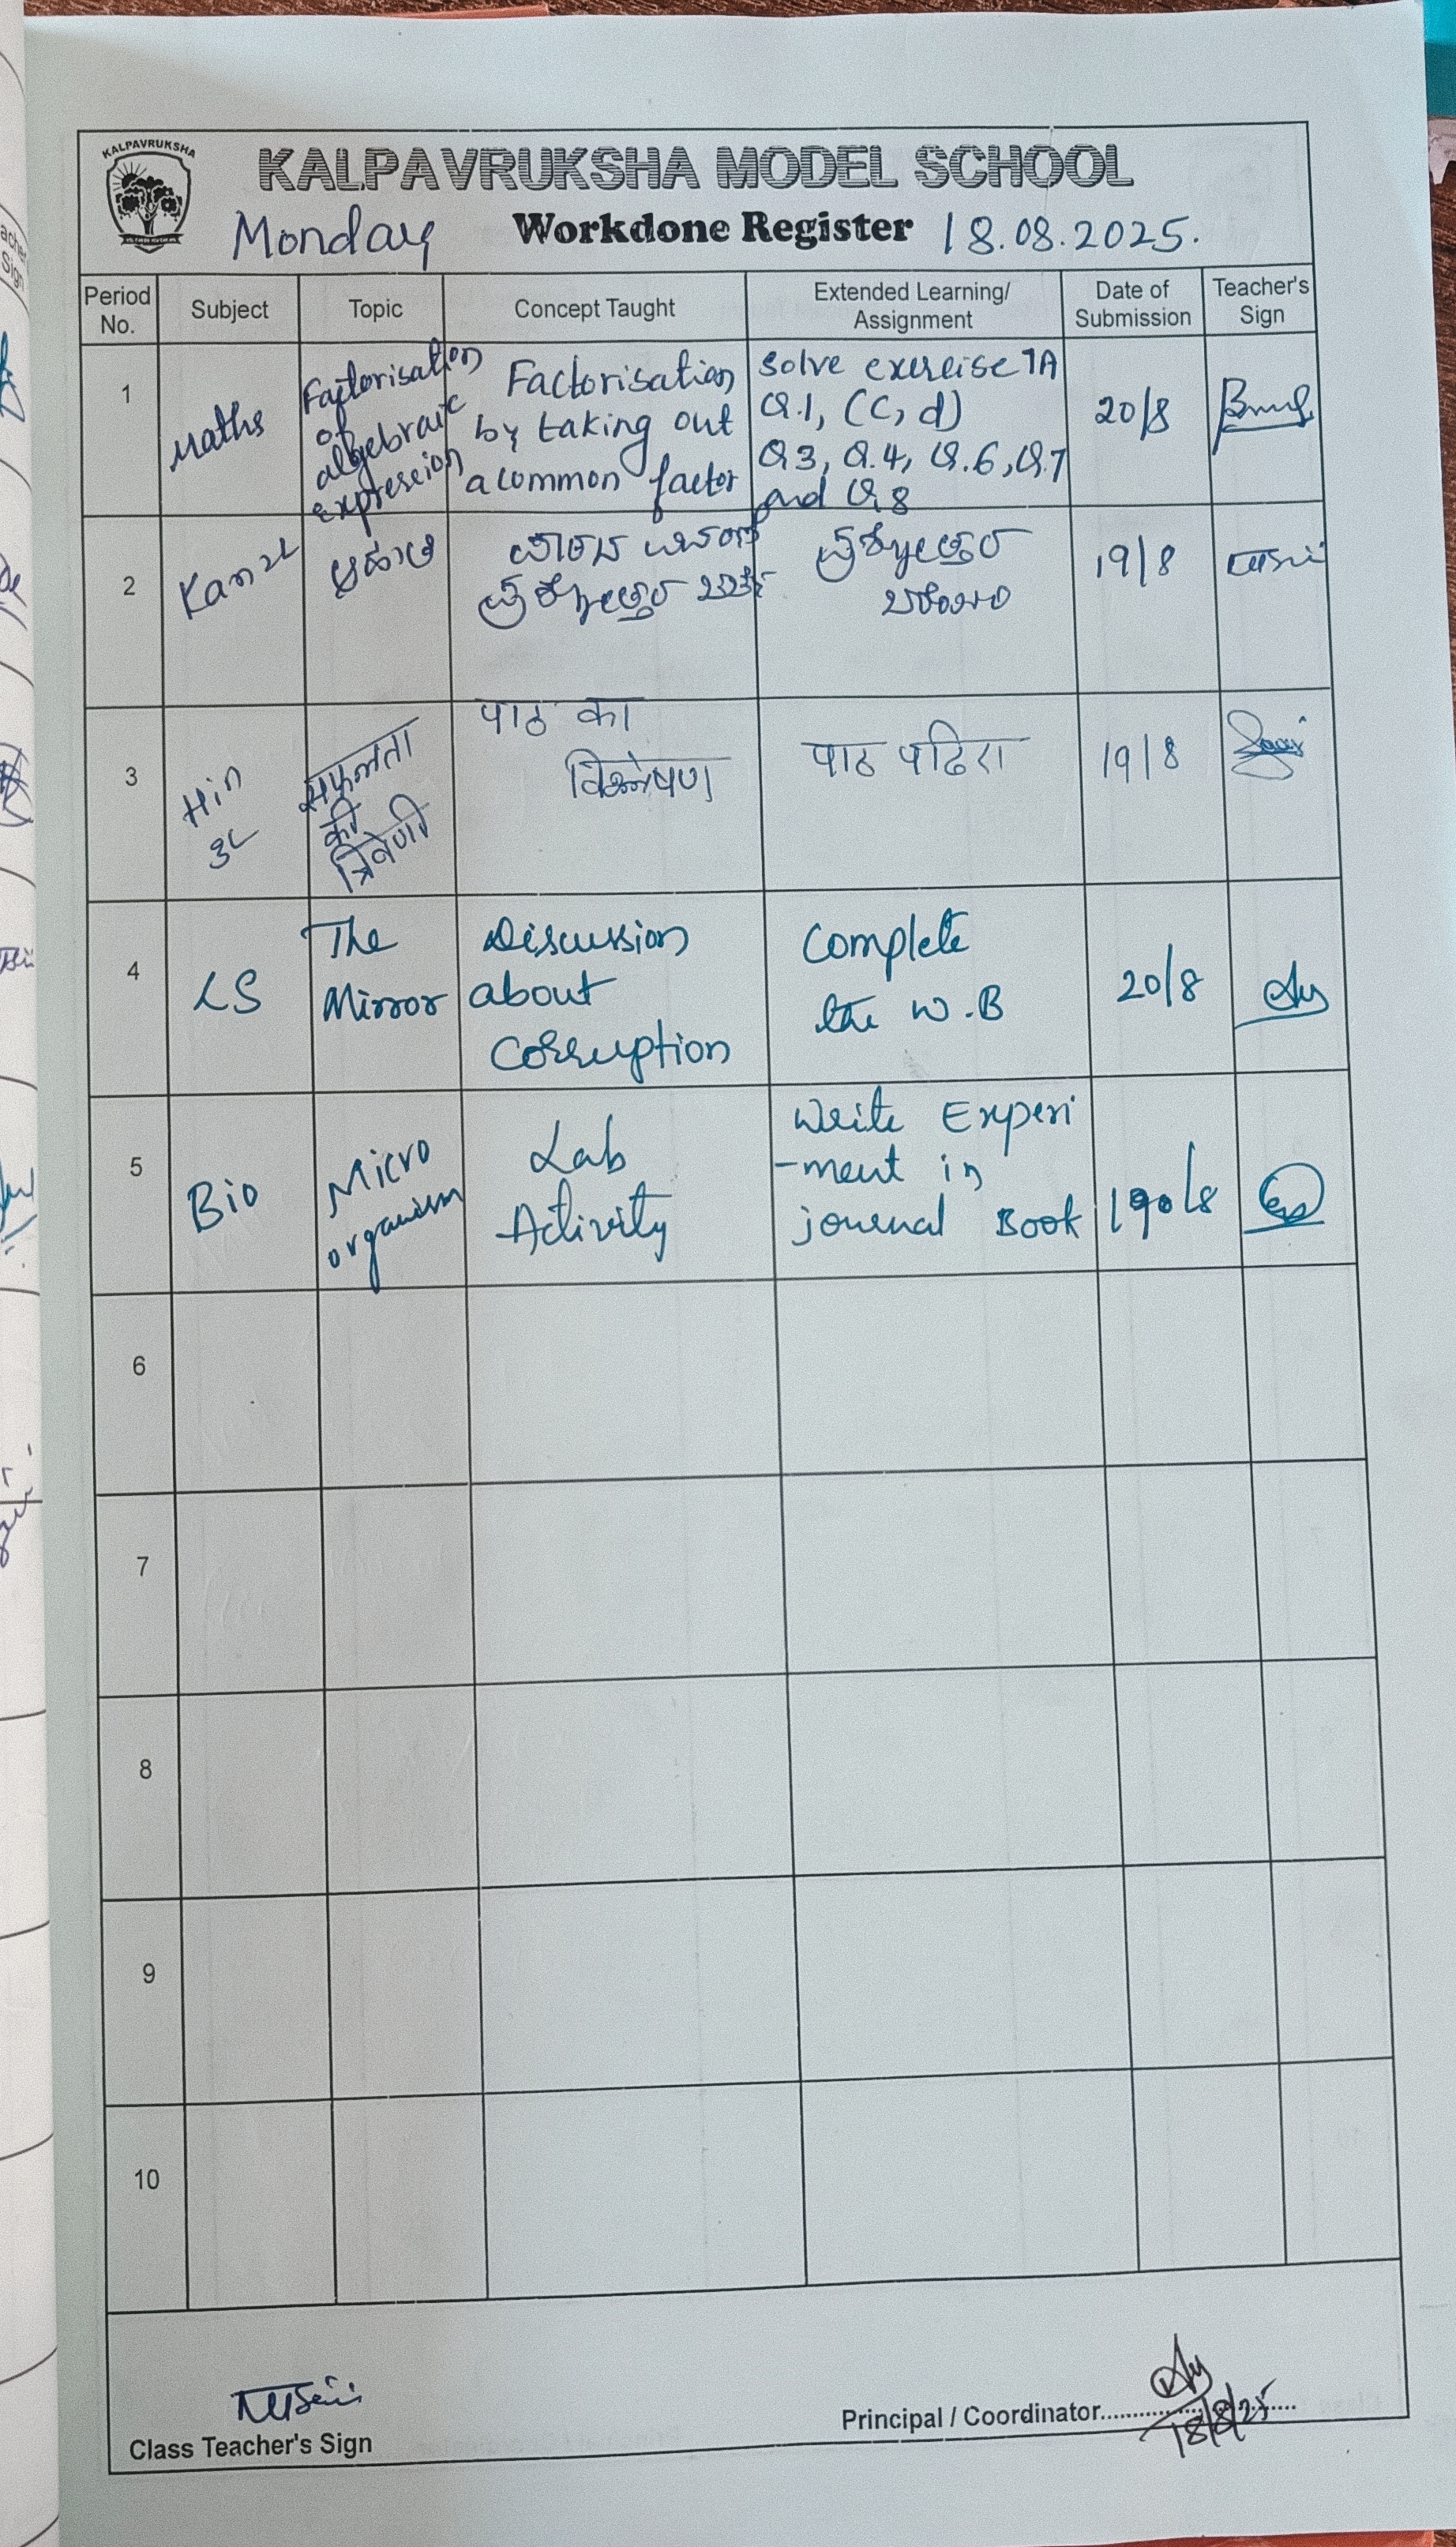 KALPAVRUKSHA
KALPAVRUKSHA MODEL SCHOOL
Monday Workdone Register 18.08.2025.
Period No. Subject Topic Concept Taught Extended Learning/ Assignment Date of Submission Teacher's Sign
1
Maths
Factorisation
of
algebraic
expression
Factorisation
by taking out
a common factor
Solve exercise 7A
Q.1, (c, d)
Q3, Q.4, Q.6, Q.7
and Q,8
20/8
2
Kan 2L
ಪ್ರಶ್ನೋತ್ತರ
ಪ್ರಶ್ನೋತ್ತರ
19/8
3
Hin
3L
सफलता
की
त्रिवेणी
पाठ का
विश्लेषण
पाठ पढिए
19/8
4
LS
The
Mirror
Discussion
about
Corruption
Complete
the W.B
20/8
5
Bio
Micro
organism
Lab
Activity
Write Experi
-ment in
journal Book
6
7
8
9
10
Class Teacher's Sign
Principal / Coordinator
18/8/25